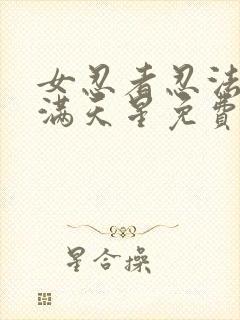 女忍者忍法
满天星免費
星合操